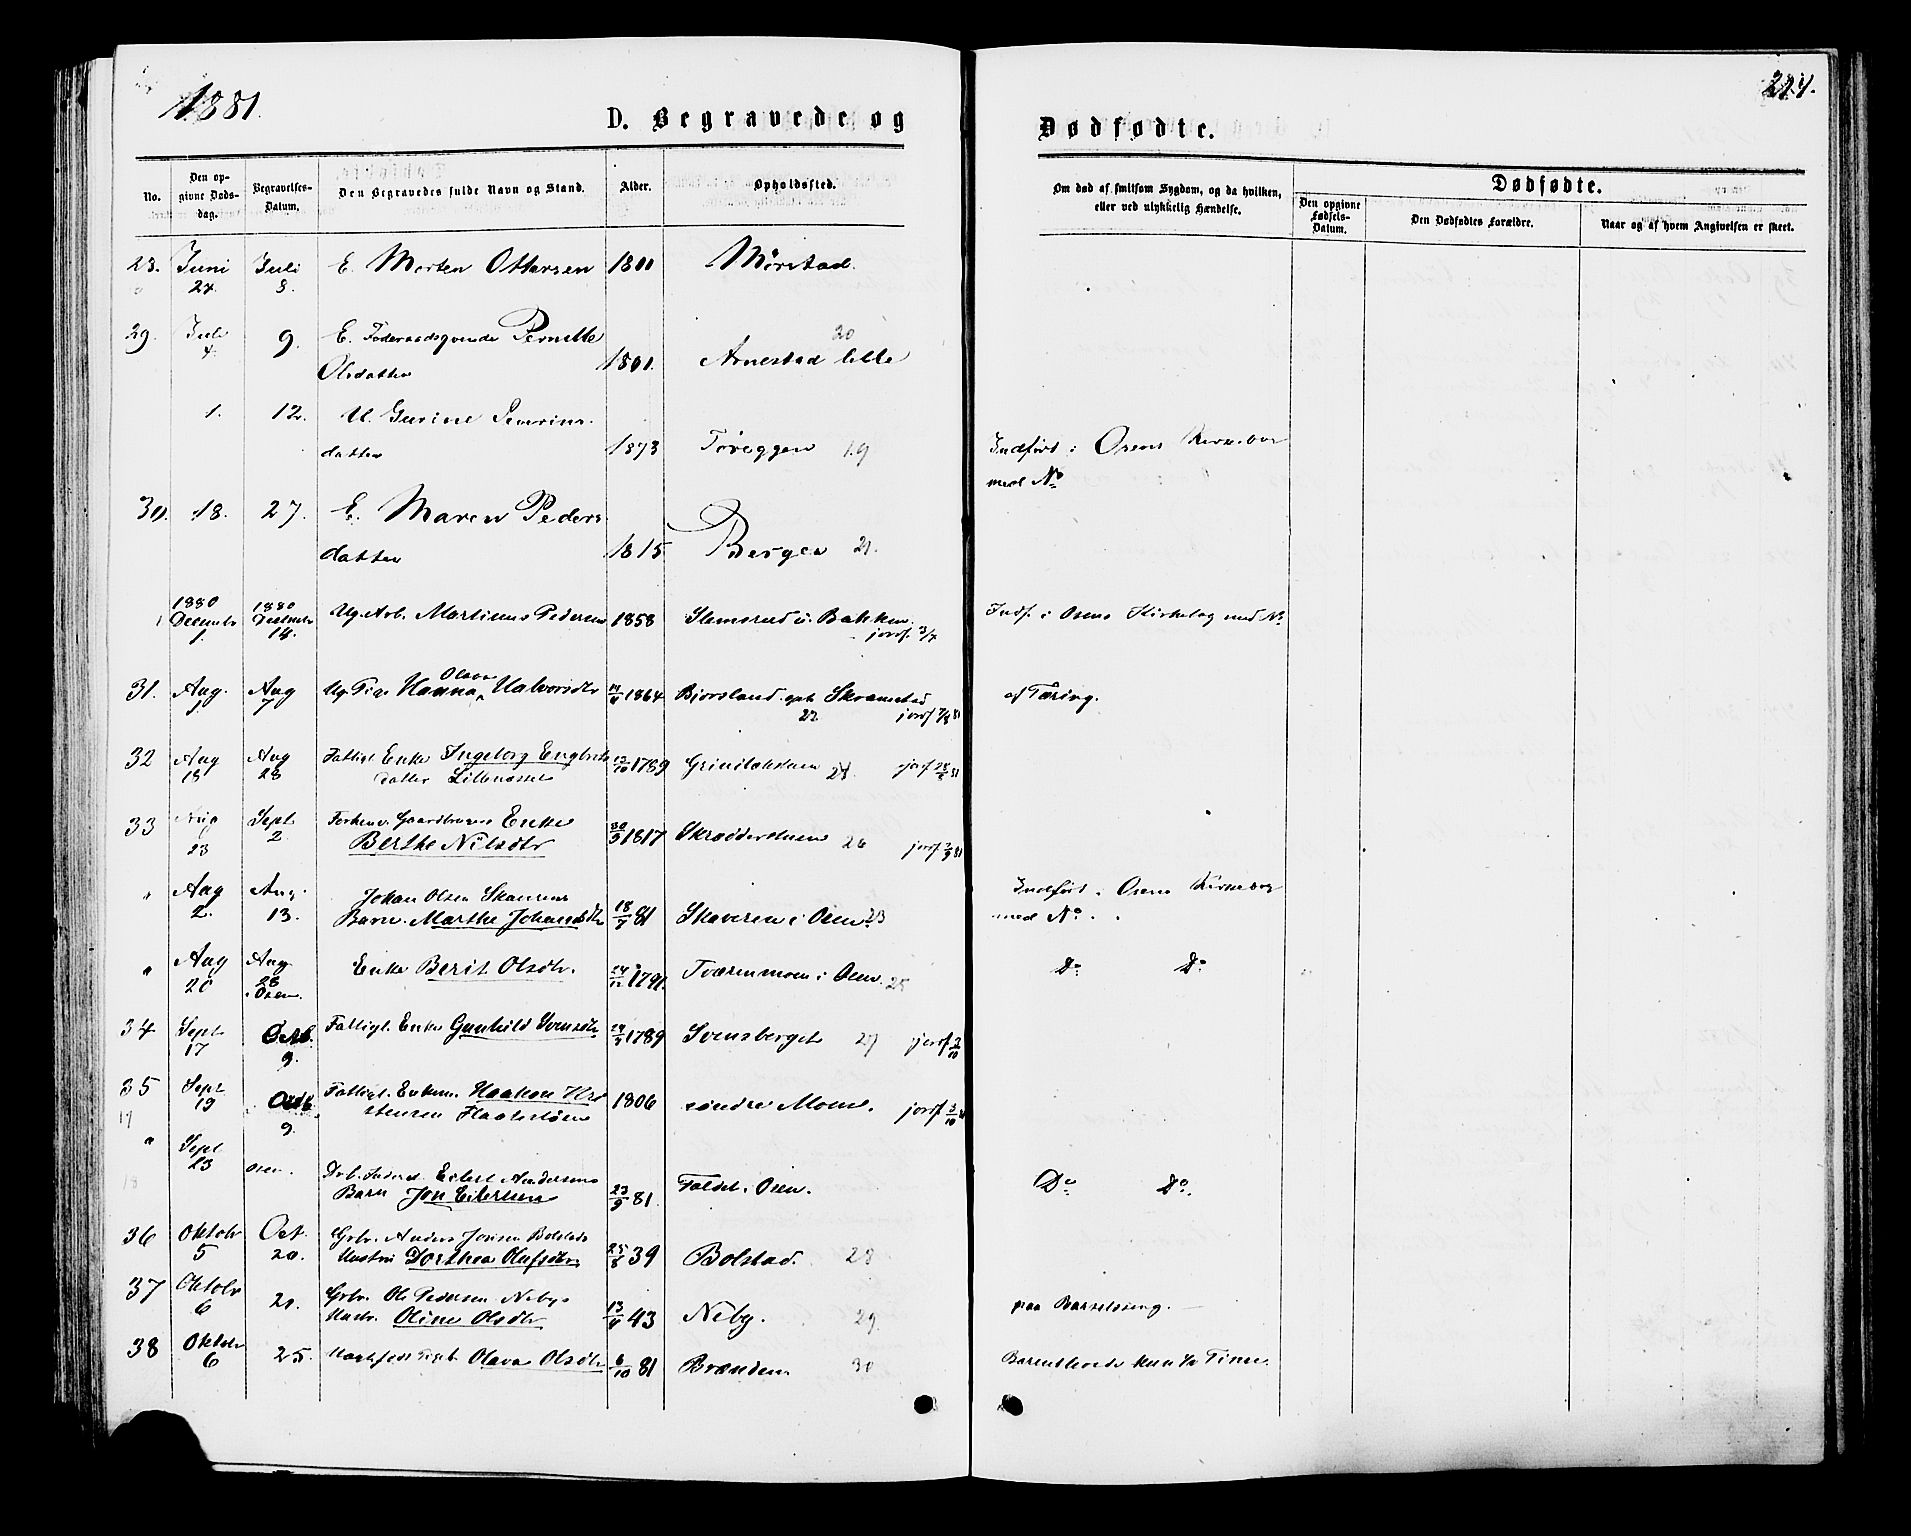 1881.
224.
D. Begravede og Dødfødte.
No.
Den opgivne Dødsdag.
Begravelses-Datum.
Den Begravedes fulde Navn og Stand.
Alder.
Opholdssted.
Om død af smitsom Sygdom, og da hvilken, eller ved ulykkelig Hændelse.
Dødfødte.
Den opgivne Fødsels-Datum.
Den Dødfødtes Forældre.
Naar og af hvem Angivelsen er skeet.
28. Juni 24. Juli 3. E. Morten Ottersen 1800 Mørstad.
29. Juli 4. 9. E. Føderaadsqvinde Pernille
Olsdatter 1801. Arnestad lille 20
1. 12. U. Gurine Severins-
datter 1873 Tøreggen 19 Indført i Osens Kirkebog
med No
30. 18. 27. E. Maren Peders
datter 1815 Bergen 21.
1880 December 1. 1880 December 14. Ug. Arb. Martinus Pedersen 1858 Stemsrud u. Bakken. jordf. 3/7 Indf. i Osens Kirkebog med No
31. Aug. 1 Aug 7 Ug. Pige Hanna Olava Halvorsdtr 1864 Bjørsland Skramstad
22 jordf 7/8 81 af Tæring.
32 Aug 18 Aug 28 Fattigl. Enke Ingeborg Engbrets
datter Lillenæsset 1789 Grindlokstuen 24. jordf 28/8 81
33 Aug 23 Sept 2 Forhenv. Gaardbrugers Enke
Berthe Nilsdtr 30/9 1817 Skrædderstuen 26 jordf 2/9 81
" Aug 2. Aug. 13. Johan Olsen Skaverens
Barn. Marthe Johansdtr 18/7 81 Skaveren i Osen 23 Indført i Osens Kirkebog
med No.
" Aug 20 Aug 28 i Osen. Enke Berit Olsdtr. 1791. Tværenmoen i Osen. 25 Do Do
34 Sept 17 Octb. 9. Fattigl. Enke Gunhild Svensdtr 1789 Svensberget 27 jordf 2/10
35 Sept 19 Octb. 9. Fattigl. Enkem. Haakon
1806 søndre Moen. jordf
17
" Sept 23 Osen.
18 Eilert Andersens
Barn Jon Eilertsen 23/9 81. Faldet i Osen. Do Do.
36 Oktobr 5 Oct. 20. Grbr. Anders Jonsen Bolstads
Hustru Dorthea Olufsdtr 25/8 39 Bolstad. 28
37 Oktobr 6 21. Grbr. Ole Pedersen Nebys
Hustr. Oline Olsdtr 43 Neby. 29 paa Barselseng.
38 Oktobr 6 25. Uægtefødt Pigeb. Olava Olsdtr 6/10 81 Brænden. 30 Barnet levede kun ½ Time.